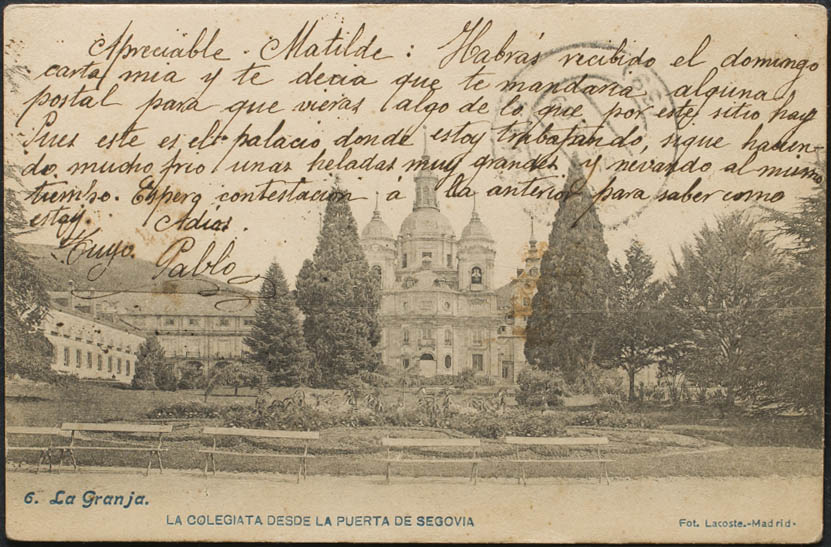 Apreciable. Matilde: Habrás recibido el domingo
carta mia y te decia que te mandaria alguna
postal para que vieras algo de lo que por este sitio hay
Pues este es el palacio donde estoy trabajando, sigue hacien-
do mucho frio unas heladas muy grandes y nevando al mismo
tiempo. Espero contestación á la anterior para saber como
estay. Adios.
Tuyo. Pablo
6. La Granja.
LA COLEGIATA DESDE LA PUERTA DE SEGOVIA
Fot. Lacoste.-Madrid-